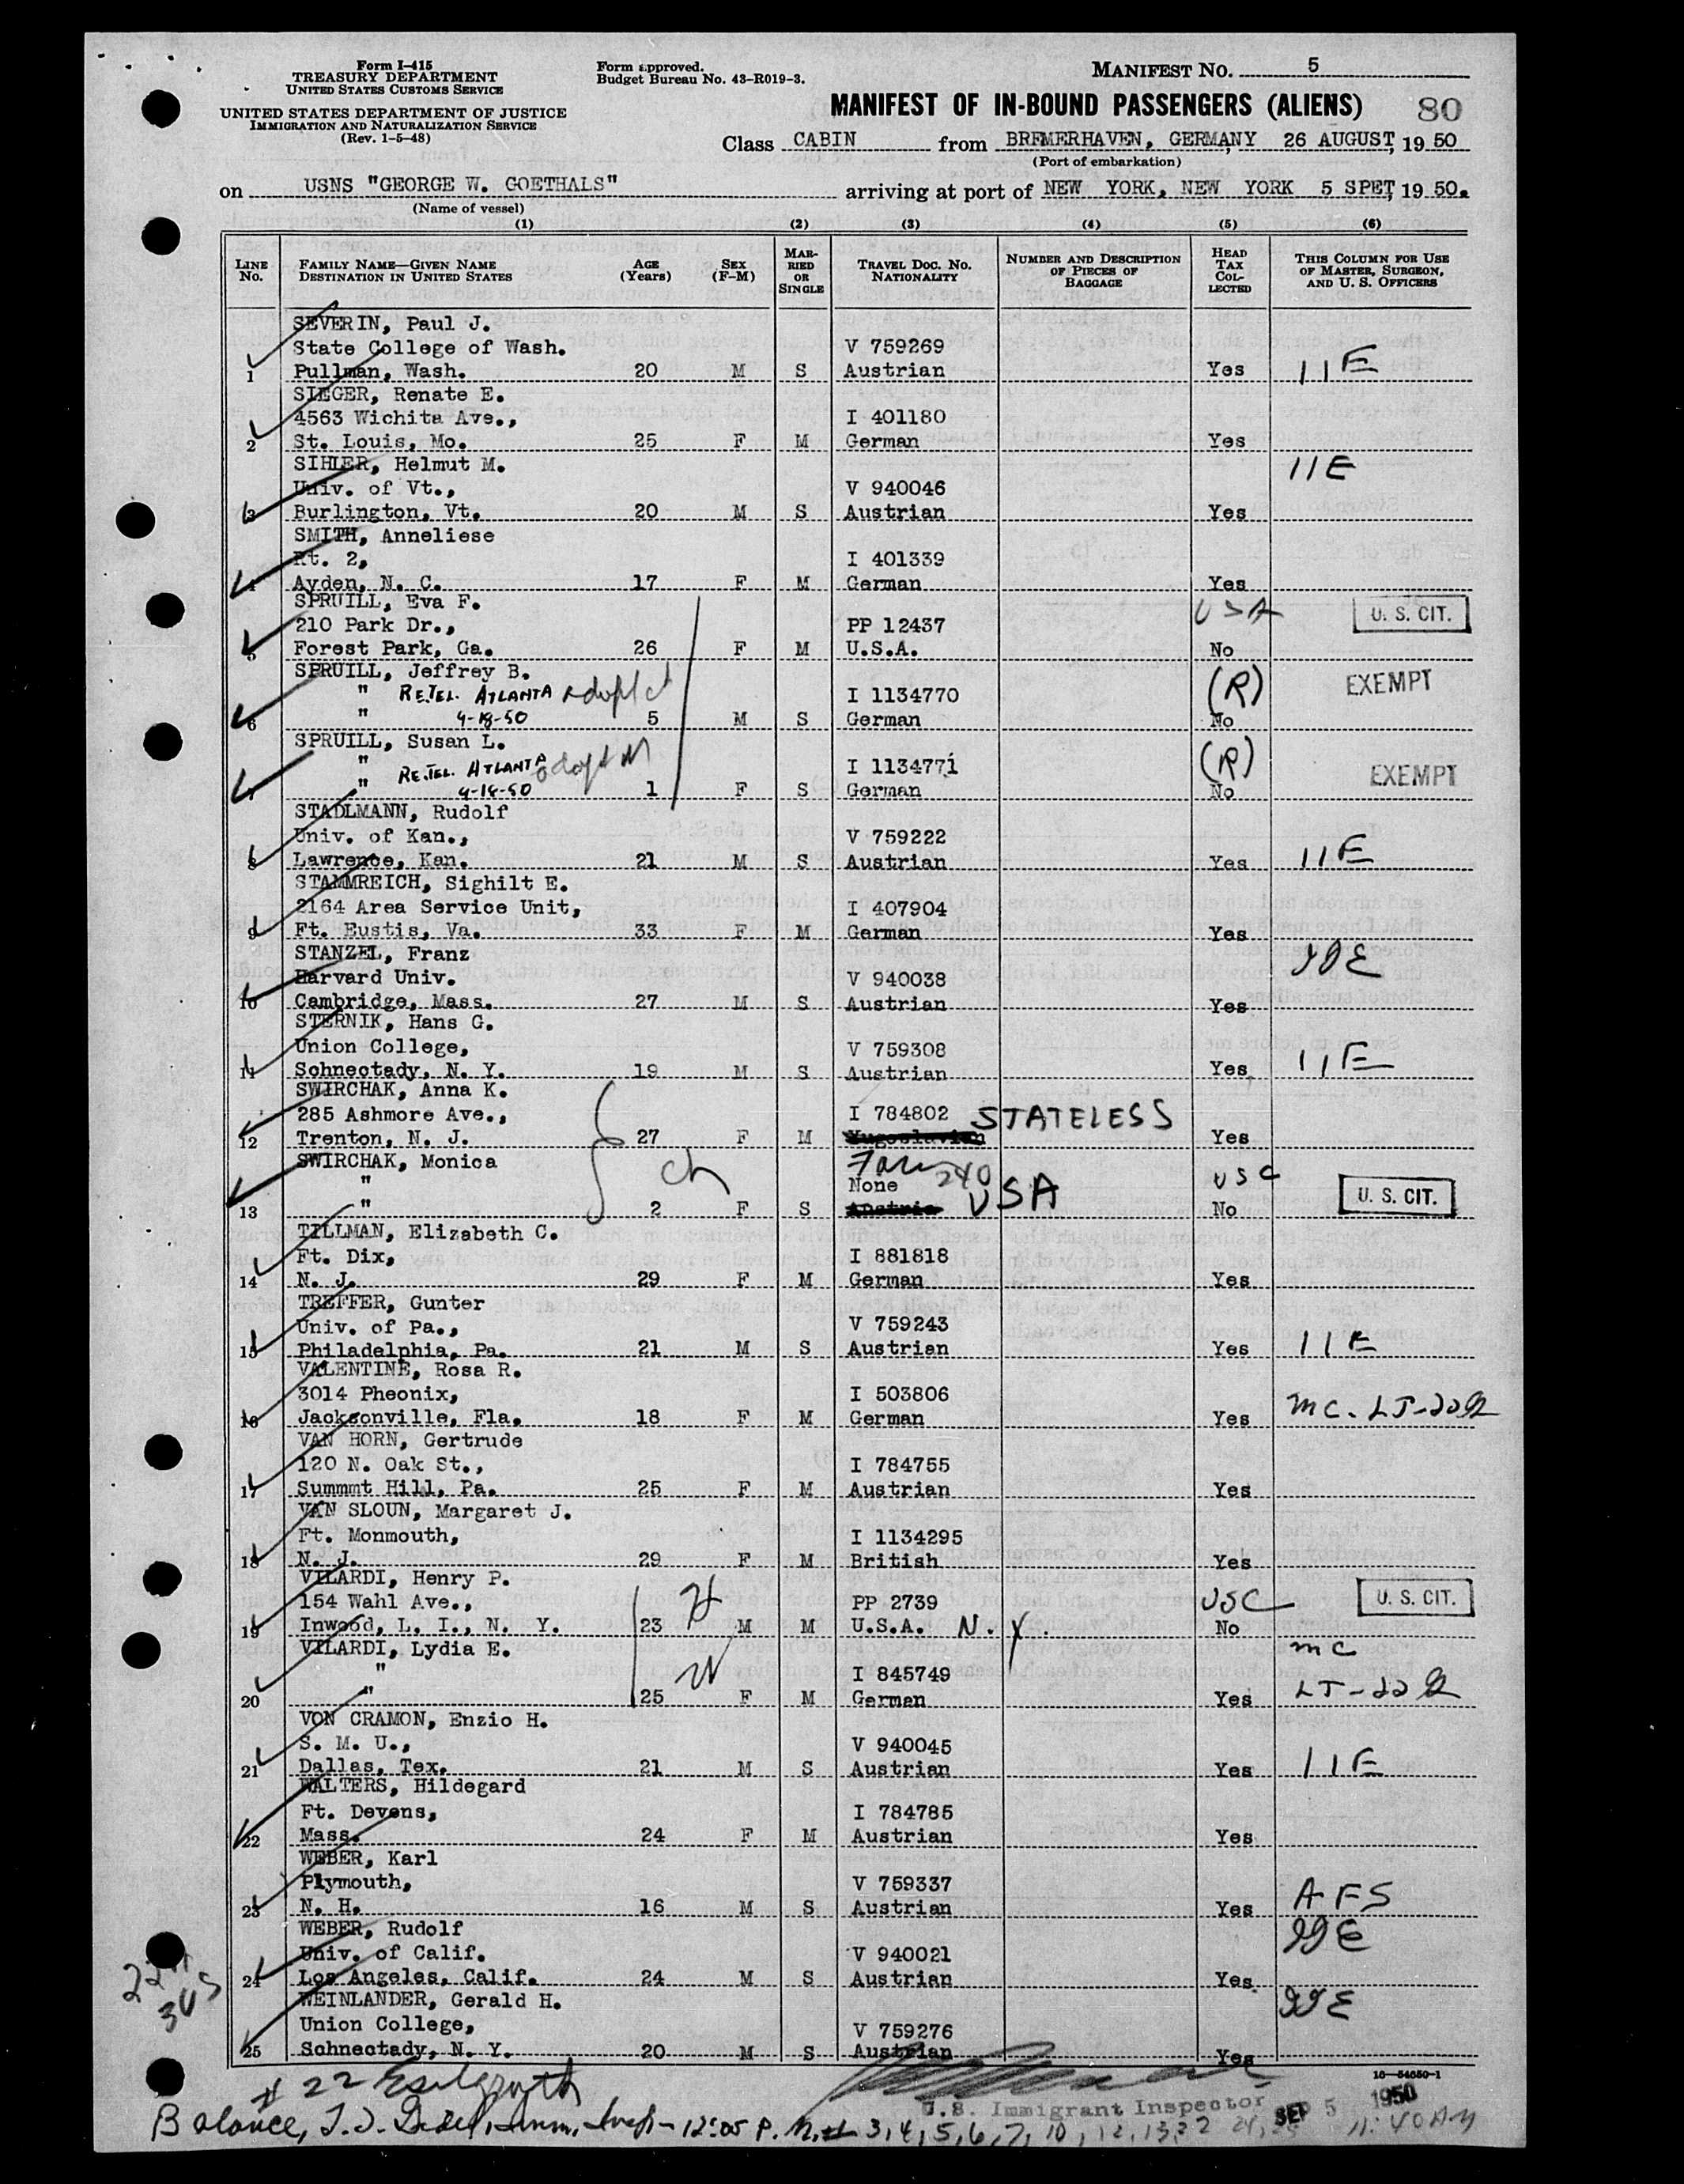 Form I-415
TREASURY DEPARTMENT
UNITED STATES CUSTOMS SERVICE
UNITED STATES DEPARTMENT OF JUSTICE
IMMIGRATION AND NATURALIZATION SERVICE
(Rev. 1-5-48)
Form approved.
Budget Bureau No. 43-R019-3.
MANIFEST NO. 5
MANIFEST OF IN-BOUND PASSENGERS (ALIENS) 80
Class CABIN from BREMERHAVEN, GERMANY, 26 AUGUST, 19 50
(Port of embarkation)
on USNS "GEORGE W. GOETHALS" arriving at port of NEW YORK, NEW YORK 5 SPET, 19 50.
(Name of vessel)
(1) (2) (3) (4) (5) (6)
LINE NO. FAMILY NAME—GIVEN NAME DESTINATION IN UNITED STATES AGE (Years) SEX (F-M) MARRIED OR SINGLE TRAVEL DOC. NO. NATIONALITY NUMBER AND DESCRIPTION OF PIECES OF BAGGAGE HEAD TAX COLLECTED THIS COLUMN FOR USE OF MASTER, SURGEON, AND U. S. OFFICERS
SEVERIN, Paul J.
State College of Wash. V 759269
1 Pullman, Wash. 20 M S Austrian Yes 11E
SIEGER, Renate E.
4563 Wichita Ave., I 401180
2 St. Louis, Mo. 25 F M German Yes
SIHLER, Helmut M. 11E
Univ. of Vt., V 940046
3 Burlington, Vt. 20 M S Austrian Yes
SMITH, Anneliese
Rt. 2, I 401339
4 Ayden, N. C. 17 F M German Yes
SPRUILL, Eva F. USA U. S. CIT.
210 Park Dr., PP 12437
5 Forest Park, Ga. 26 F M U.S.A. No
SPRUILL, Jeffrey B. (R) EXEMPT
" RE.TEL. ATLANTA adopted I 1134770
6 " 4-18-50 5 M S German No
SPRUILL, Susan L. (R)
" RE.TEL. ATLANTA adopted I 1134771 EXEMPT
7 " 4-18-50 1 F S German No
STADLMANN, Rudolf
Univ. of Kan., V 759222
8 Lawrence, Kan. 21 M S Austrian Yes 11E
STAMMREICH, Sighilt E.
2164 Area Service Unit, I 407904
9 Ft. Eustis, Va. 33 F M German Yes
STANZEL, Franz IIE
Harvard Univ. V 940038
10 Cambridge, Mass. 27 M S Austrian Yes
STERNIK, Hans G.
Union College, V 759308
11 Schnectady, N. Y. 19 M S Austrian Yes 11E
SWIRCHAK, Anna K.
285 Ashmore Ave., I 784802 STATELESS
12 Trenton, N. J. 27 F M Yugoslavian Yes
SWIRCHAK, Monica ch 240 USC
" None
13 " 2 F S Austria USA No U. S. CIT.
TILLMAN, Elizabeth C.
Ft. Dix, I 881818
14 N. J. 29 F M German Yes
TREFFER, Gunter
Univ. of Pa., V 759243
15 Philadelphia, Pa. 21 M S Austrian Yes 11E
VALENTINE, Rosa R.
3014 Pheonix, I 503806
16 Jacksonville, Fla. 18 F M German Yes
VAN HORN, Gertrude
120 N. Oak St., I 784755
17 Summmt Hill, Pa. 25 F M Austrian Yes
VAN SLOUN, Margaret J.
Ft. Monmouth, I 1134295
18 N. J. 29 F M British Yes
VILARDI, Henry P.
154 Wahl Ave., H PP 2739 USC U. S. CIT.
19 Inwood, L. I., N. Y. 23 M M U.S.A. N. Y. No
VILARDI, Lydia E. mc
" W I 845749
20 " 25 F M German Yes
VON CRAMON, Enzio H.
S. M. U., V 940045
21 Dallas, Tex. 21 M S Austrian Yes 11E
WALTERS, Hildegard
Ft. Devens, I 784785
22 Mass. 24 F M Austrian Yes
WEBER, Karl
Plymouth, V 759337
23 N. H. 16 M S Austrian Yes AFS
WEBER, Rudolf IIE
Univ. of Calif. V 940021
24 Los Angeles, Calif. 24 M S Austrian Yes
WEINLANDER, Gerald H. IIE
Union College, V 759276
25 Schnectady, N. Y. 20 M S Austrian Yes
16—54650-1
# 22
U.S. Immigrant Inspector SEP 5 1950
Balance, 12:05 P.M. # 3, 4, 5, 6, 7, 10, 12, 13, 22 24, 25 11:40 AM